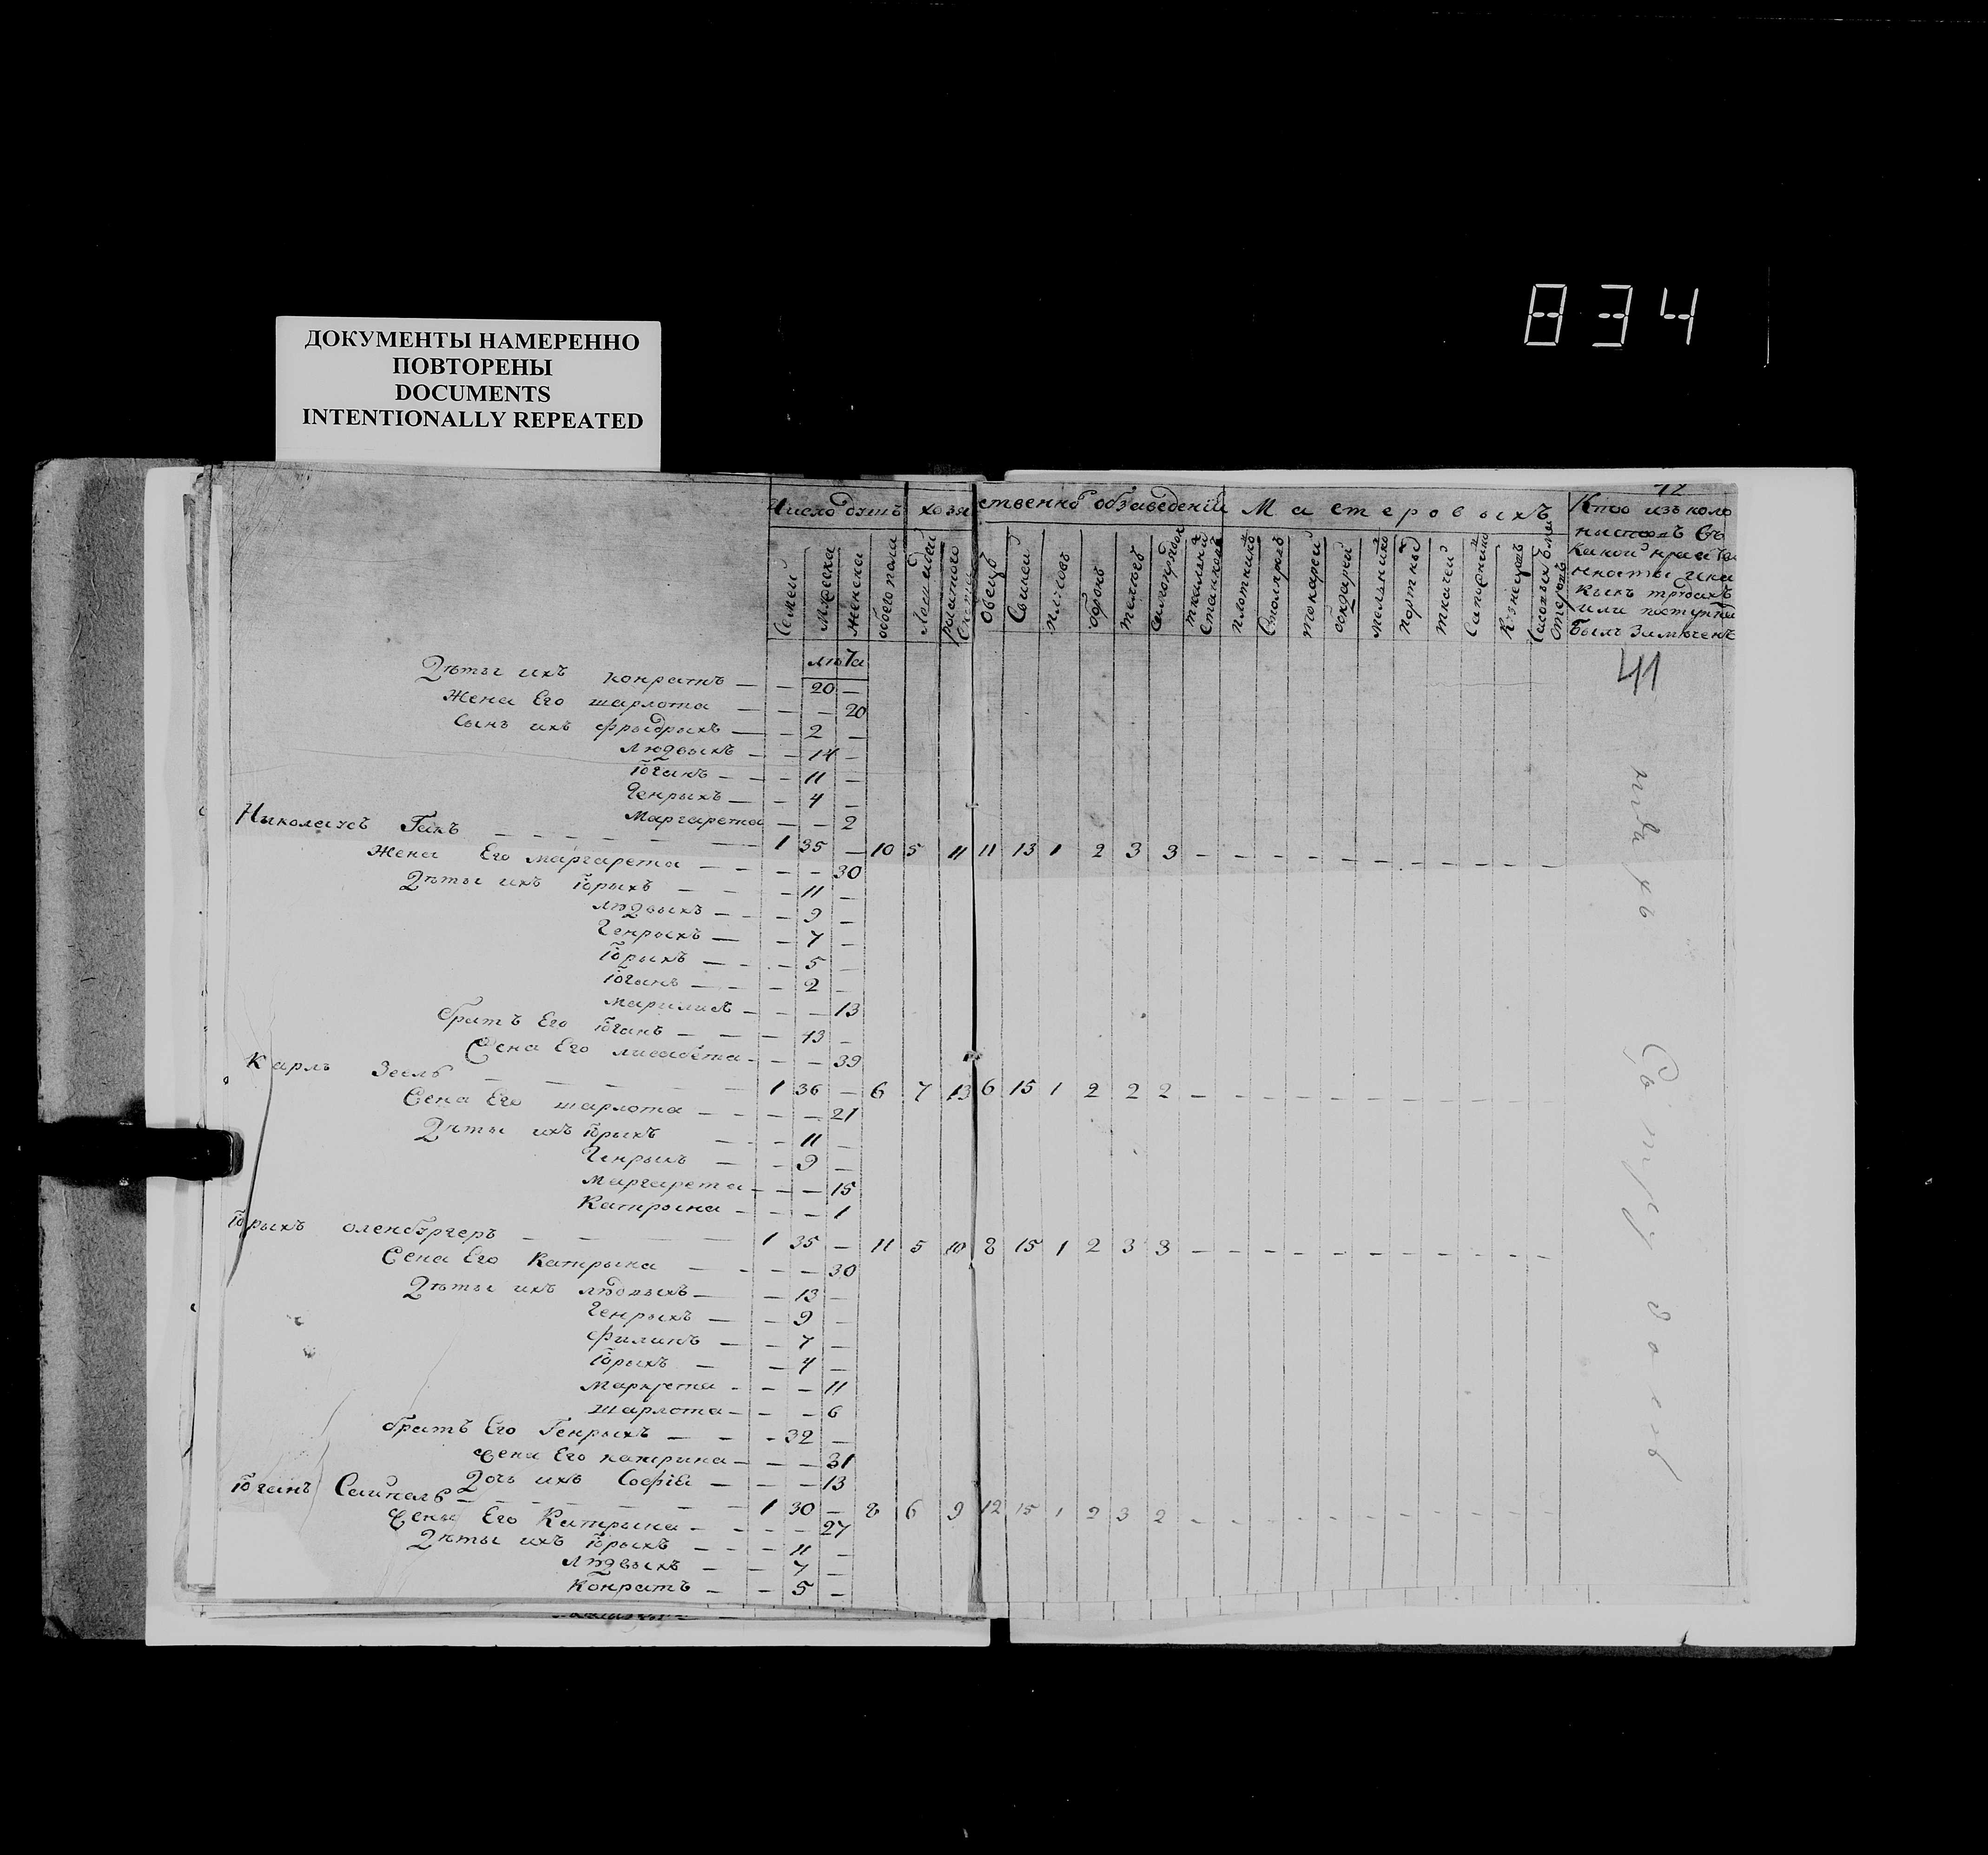 834
ДОКУМЕНТЫ НАМЕРЕННО
ПОВТОРЕНЫ
DOCUMENTS
INTENTIONALLY REPEATED
Число душъ хозя ственно обзаведенiй Мастеровыхъ Кто изъ коло
нистовъ въ
какой
или поступка
былъ замѣченъ
Семей Мужеска Женска обоего пола Лошадей рогатого скота Овецъ Свиней плуговъ боронъ телегъ Самопрялок ткальныхъ станковъ плотниковъ Столяровъ токарей бондарей мельниковъ портныхъ ткачей Сапожниковъ Кузнецовъ
лѣта
41
Дѣты ихъ конратъ — — 20 —
Жена Его шарлота — — — 20
Сынъ ихъ фрыдрыхъ — — 2 —
Людвыхъ — — 14 —
Юганъ — — 11 —
Генрыхъ — — 4 —
Маргарета — — 2
Ныколаусъ Гакъ — 1 35 — 10 5 11 11 13 1 2 3 3 — — — — — — — — — —
Жена Его маргарета — — — 30
Дѣты ихъ Юрыхъ — — 11 —
людвыхъ — — 9 —
Генрыхъ — — 7 —
Юрыхъ — — 5 —
Юганъ — — 2 —
— — 13
братъ Его Юганъ — — 43 —
Жена Его лисабета — — — 39
Карлъ Зеель — 1 36 — 6 7 13 6 15 1 2 2 2 — — — — — — — — — — —
Жена Его шарлота — — — 21
Дѣты ихъ Юрыхъ — — 11 —
Генрыхъ — — 9 —
Маргарета — — — 15
Катрына — — — 1
Юрыхъ оленбургеръ — 1 35 — 11 5 10 8 15 1 2 3 3 — — — — — — — — — — —
Жена Его Катрына — — — 30
Дѣты ихъ людвыхъ — — 13 —
Генрыхъ — — 9 —
Филипъ — — 7 —
Юрыхъ — — 4 —
Маркрета — — — 11
шарлота — — — 6
братъ Его Генрыхъ — — 32 —
жена Его катрина — — — 31
Дочь ихъ Софiя — — — 13
Юганъ — 1 30 — 8 6 9 12 15 1 2 3 2 — — — — — — — — — — —
Жена Его Катрына — — — 27
Дѣты ихъ Юрыхъ — — 11 —
Людвыхъ — — 7 —
Конратъ — — 5 —